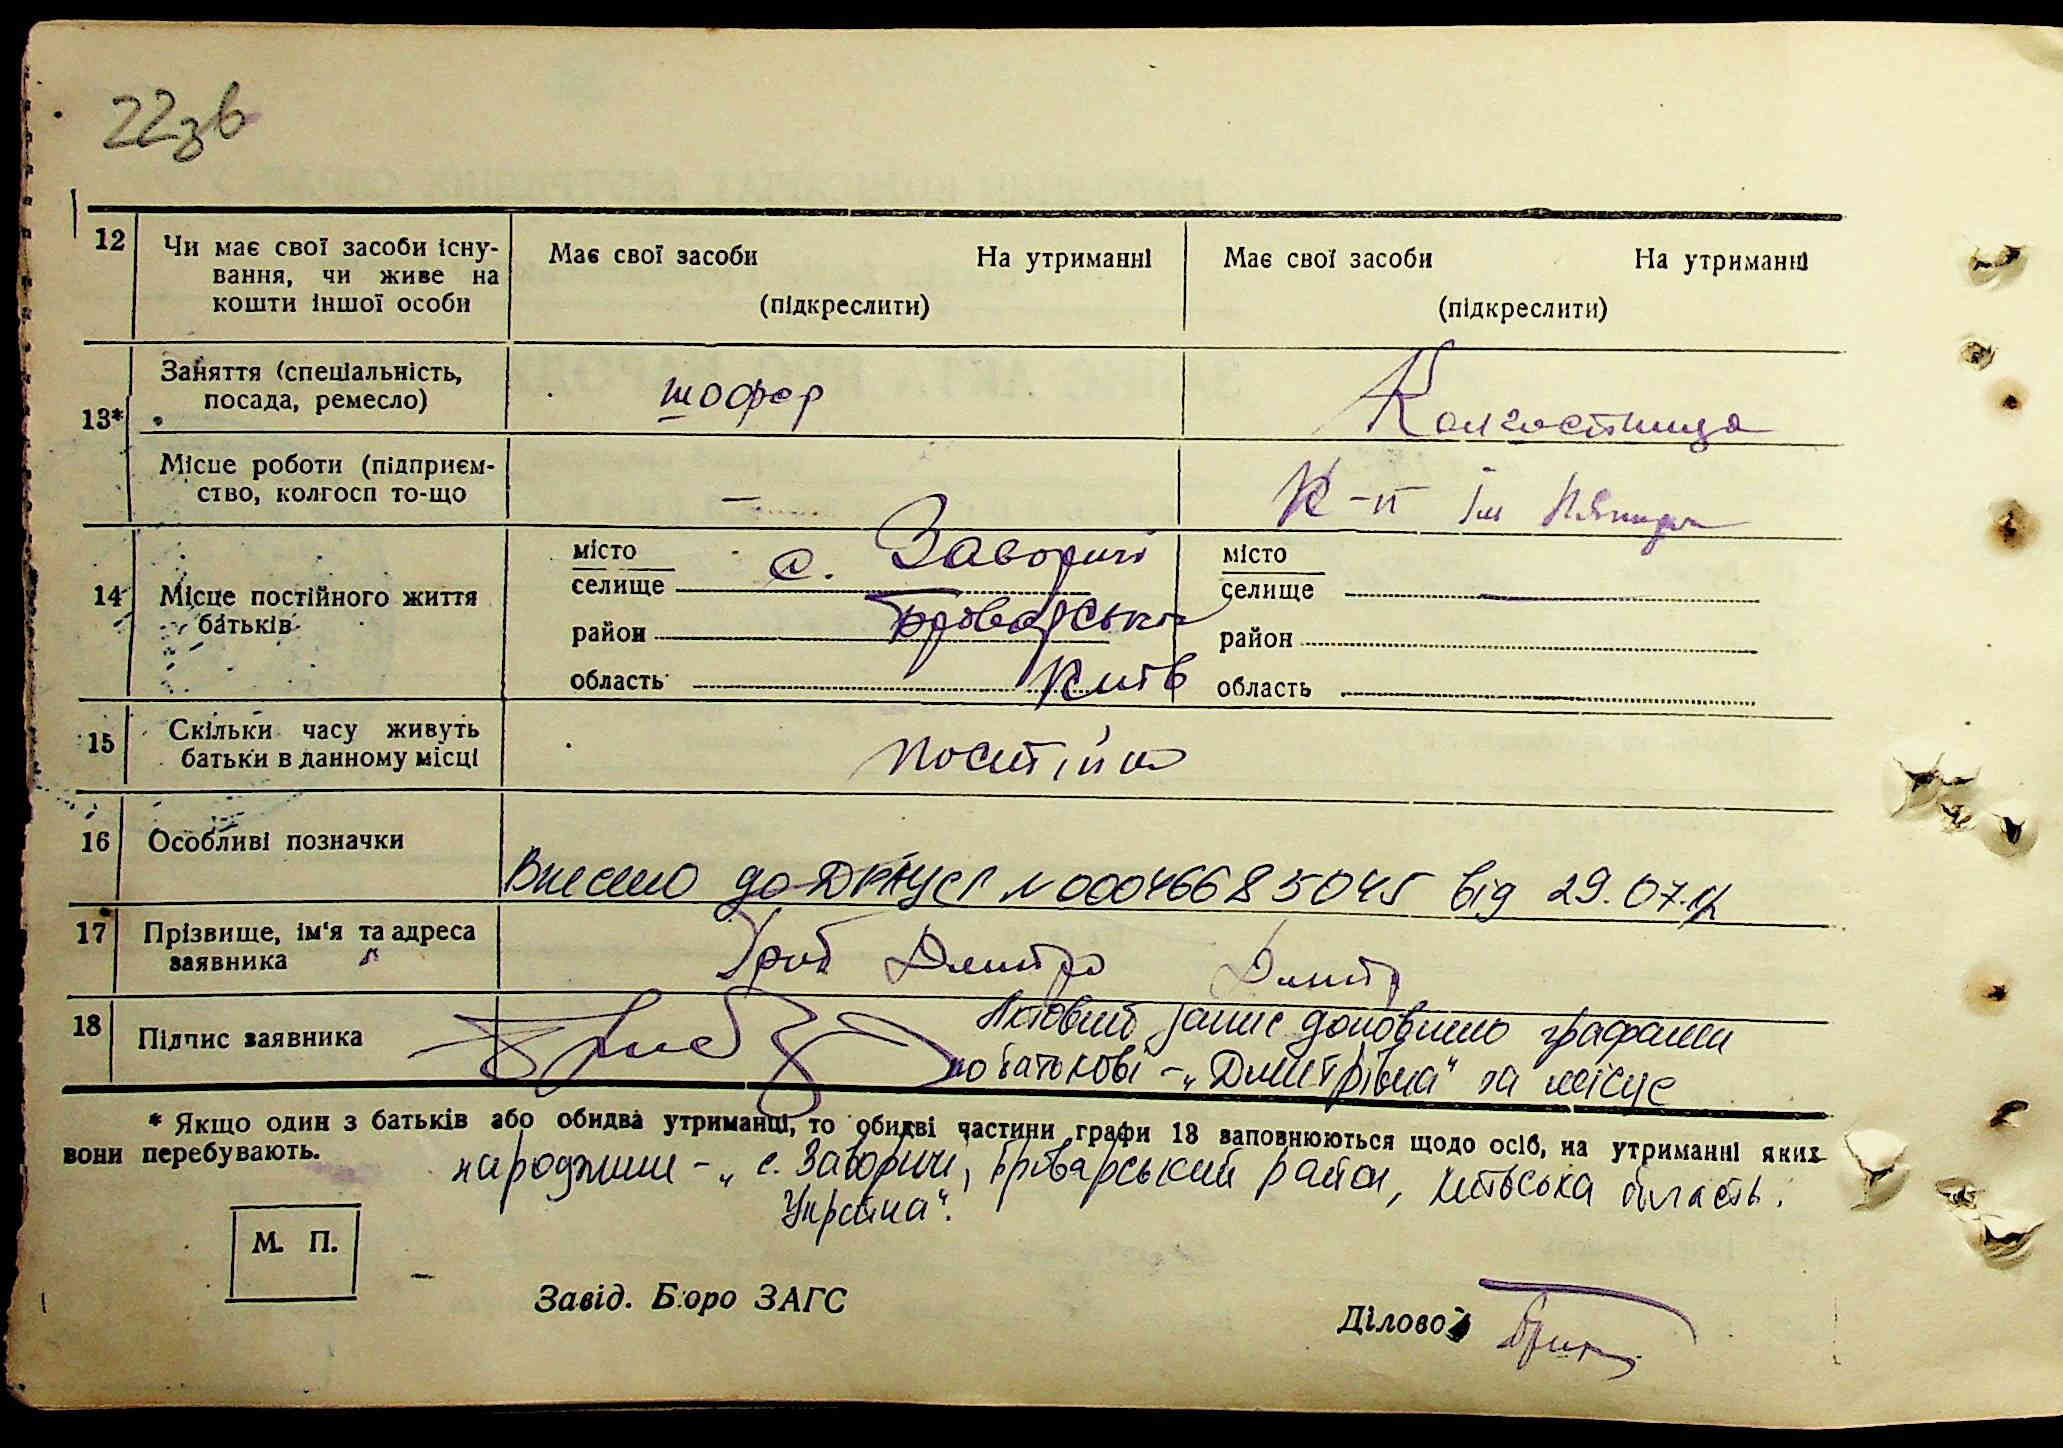 22зв
12 Чи має свої засоби існу-
вання, чи живе на
кошти іншої особи
Має свої засоби На утриманні
(підкреслити)
Має свої засоби На утриманні
(підкреслити)
13* Заняття (спеціальність,
посада, ремесло)
шофер
Колгостница
Місце роботи (підприєм-
ство, колгосп то-що
—
К-п ім
14 Місце постійного життя
батьків
місто
селище с. Заворичі
район Броварськи
область Київ
місто
селище —
район
область
15 Скільки часу живуть
батьки в данному місці
постійно
16 Особливі позначки
Внесено до ДРАЦСГ N 00046685045 від 29.07.
17 Прізвище, ім'я та адреса
заявника
Дмитро Дмитр
18 Підпис заявника
Актовий запис доповнено графами
по батькові – „Дмитрівна" та місце
* Якщо один з батьків або обидва утриманці, то обидві частини графи 13 заповнюються щодо осіб, на утриманні яких
вони перебувають.
народження – „с. Заворичі, Броварський район, Київська область,
Україна".
М. П.
Завід. Бюро ЗАГС
Діловод